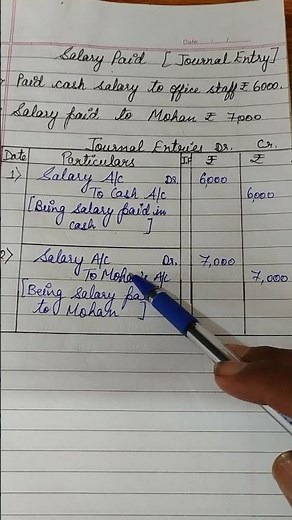 Date
Salary Paid [Journal Entry]
Paid cash salary to office staff ₹ 6000.
Salary paid to Mohan ₹ 7,000
Journal Entries Dr. Cr.
Date Particulars ₹ ₹
1) Salary A/c Dr. 6,000
To Cash A/c 6,000
[Being salary paid in
cash ]
2) Salary A/c Dr. 7,000
To A/c 7,000
[Being salary
to Mohan ]